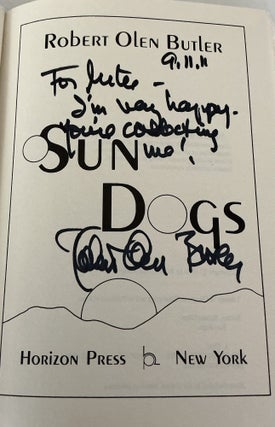 ROBERT OLEN BUTLER
9.11.11
For Mitee –
I'm very happy
you're collecting
me!
SUN
DOGS
Robert Olen Butler
HORIZON PRESS NEW YORK